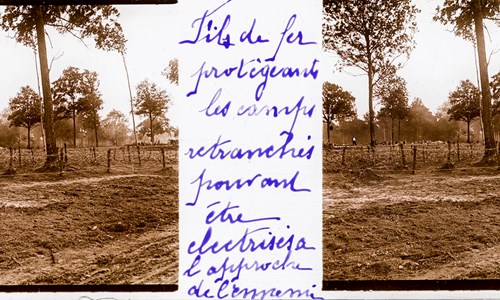 Fils de fer
protégeants
les camps
retranchés
pouvant
être
electrisés a
l'approche
de l'ennemi